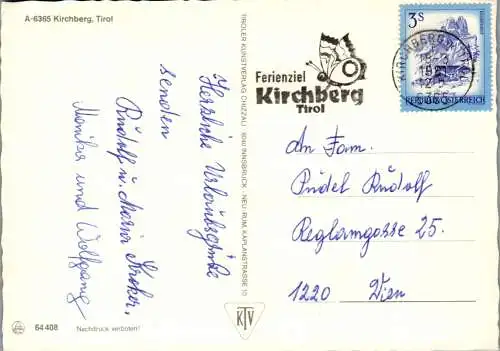 A-6365 Kirchberg, Tirol
Herzliche Urlaubsgrüße
senden
Rudolf u. Maria
Monika und Wolfgang
TIROLER KUNSTVERLAG CHIZZALI · 6040 INNSBRUCK - NEU-RUM, KAPLANSTRASSE 10
KTV
64408
Nachdruck verboten!
Ferienziel
Kirchberg
Tirol
3S
REPUBLIK ÖSTERREICH
KIRCHBERG
6365
An Fam.
Pudel Rudolf
Reglamgasse 25.
1220 Wien